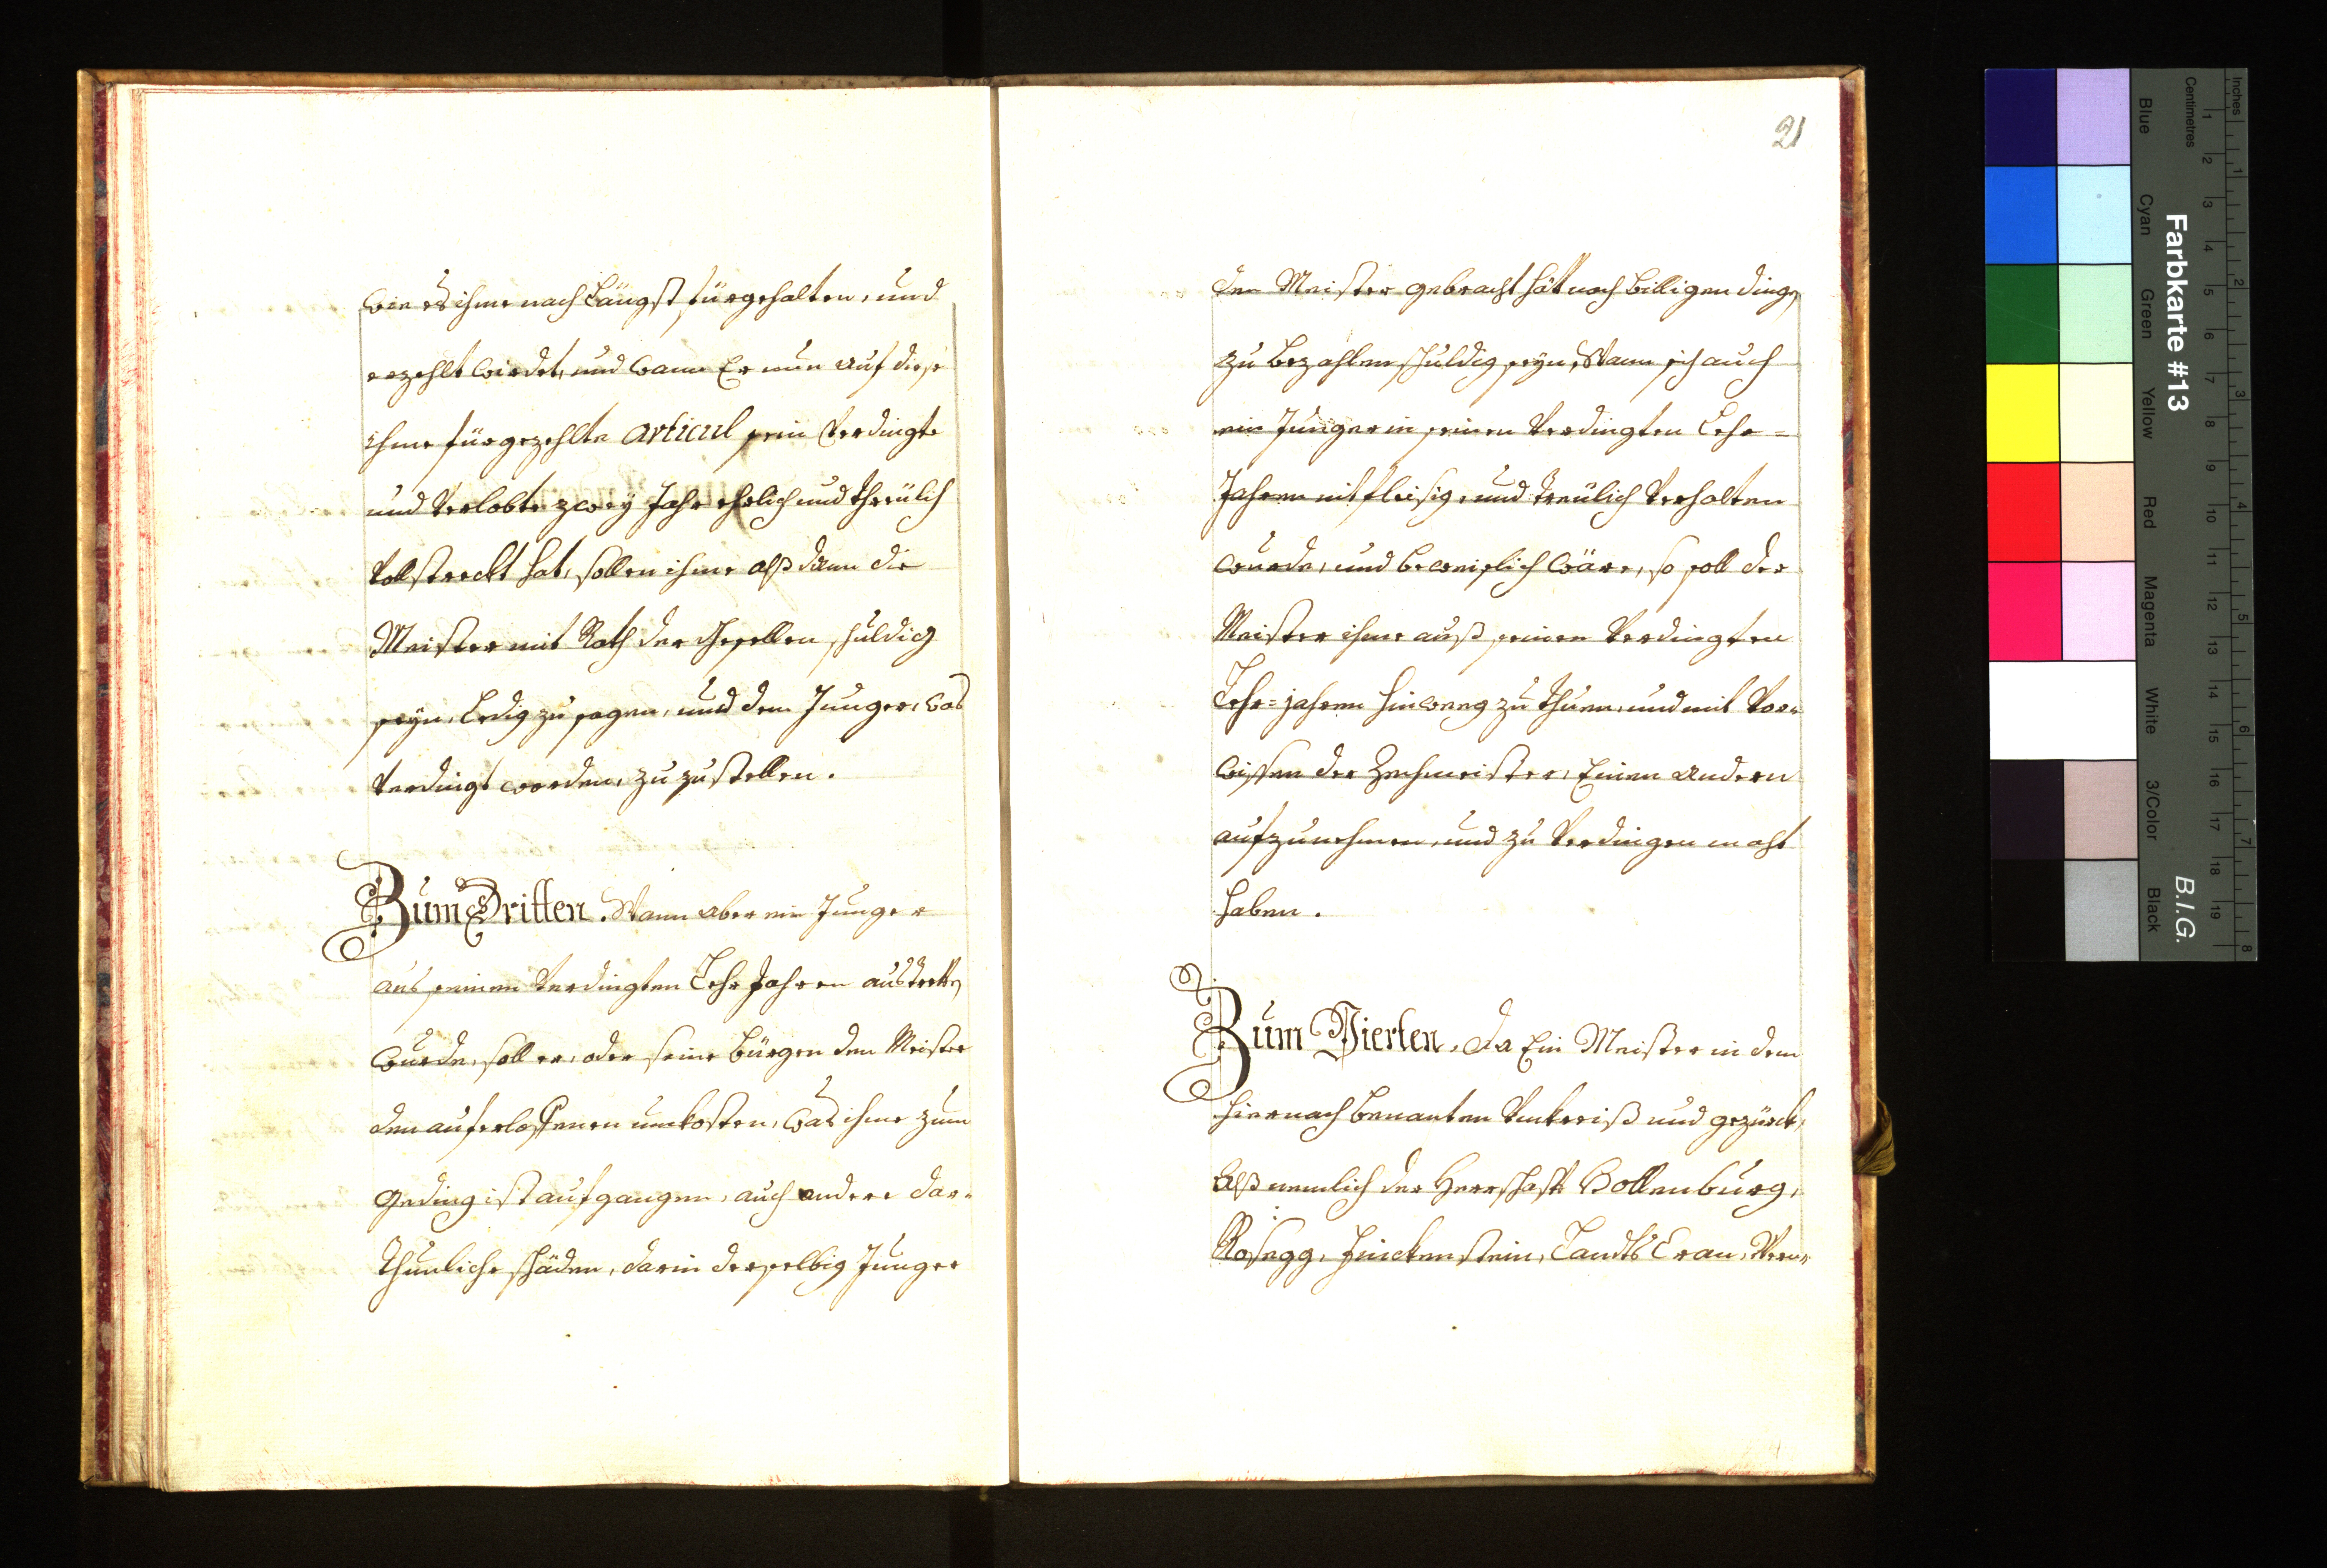 wie es ihme nach Längst fürgehalten, und
erzehlt wirdet, und wann Er nun auf diese
ihme fürgezehlte articul sein Verdingte
und Verlobte zwey Jahr ehrlich und threülich
Vollstreckt hat, sollen ihme alß dann die
Meister mit Rath der Gesellen schuldig
seyn, Ledig zu sagen, und dem Junger, was
Verdingt worden, zu zustellen.
Zum Dritten. Wann aber ein Junger
aus seinen Verdingten Lehr Jahren austretten
wurde, soll er, oder seine bürgen dem Meister
den auferloffenen unkosten, was ihme zum
geding ist aufgangen, auch andere dar-
thunliche schäden, darin derselbig Junger
21
den Meister gebracht hat nach billigen dingen
zu bezahlen schuldig seyn, Wann sich auch
ein Junger in seinen Verdingten Lehr=
Jahren nit fleisig, und treülich Verhalten
wurde, und beweislich wäre, so soll der
Meister ihme auß seinen Verdingten
Lehr=jahren hinweeg zu thuen, und mit Vor-
wissen der Zechmeister, Einen andern
aufzunehmen, und zu Verdingen macht
haben.
Zum Vierten, Da Ein Meister in dem
hiernach benanten Umkreiß und gezürck,
Alß nemlich der Herrschaft Hollenburg,
Rosegg, Finckenstein, Landts Cran, Vern-